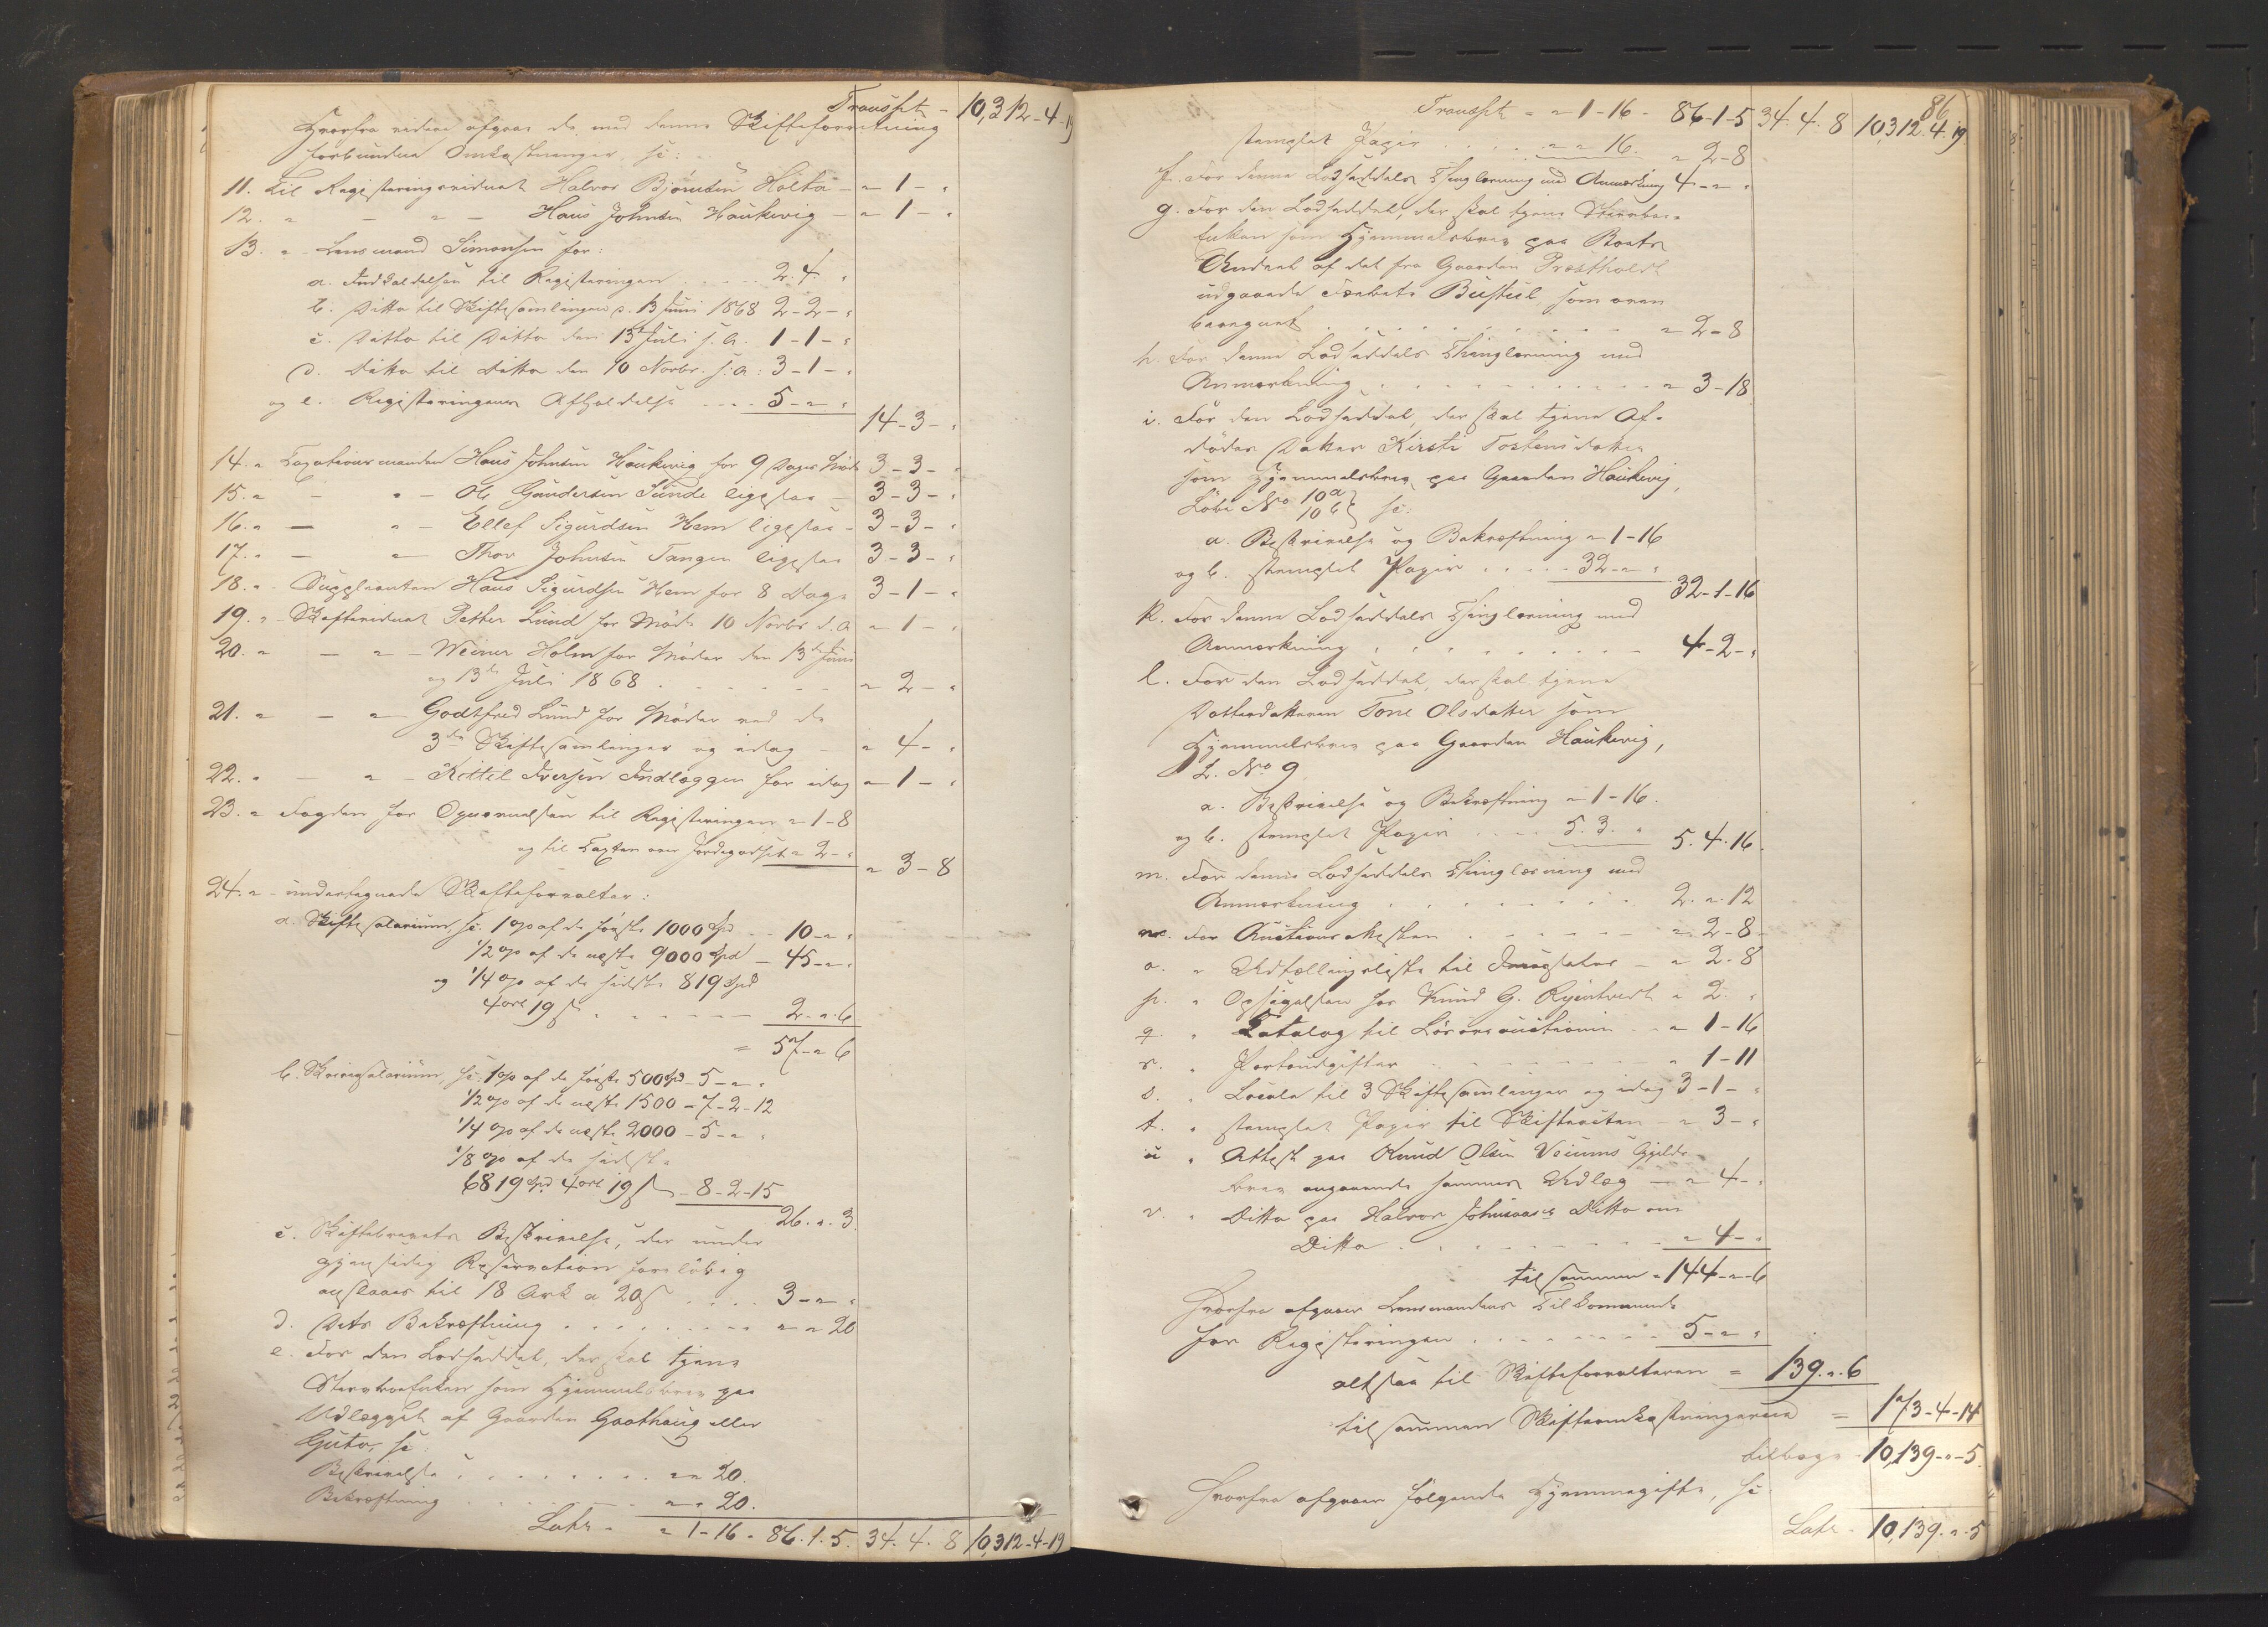 Transpt - 10,312-4-19
Hvorfra videre afgaar de med denne Skifteforretning
forbundne Omkostninger, sc:
11. Til Registeringsvidnet Halvor Björnsen Holta - " 1 - "
12. " - " - Hans Johnsen Haukevig - " 1 - "
13. " - Lensmand Simonsen for:
a. Indkaldelsen til Registeringen . . . . 2. 4 "
b. Ditto til Skiftesamlingen d. 13 Juni 1868 2-2- "
c. Ditto til Ditto den 13de Juli s. A. 1-1- "
d. Ditto til Ditto den 10 Novbr. s: A: 3-1- "
og e. Registeringens Afholdelse . . . . 5 - " "
14-3- "
14. " Taxationsmanden Hans Johnsen Haukevig for 9 Dages Møde 3-3- "
15. " - " - Ole Gundersen Sunde ligesaa - 3-3- "
16. " - " - Ellef Sigurdsen Hem ligesaa - 3-3- "
17. " - " Thor Johnsen Tangen ligesaa 3-3- "
18. " - Suppleanten Hans Sigurdsen Hem for 8 Dage 3-1- "
19. " - Skiftevidnet Petter Lund for Møde 10 Novbr d. A " 1 - "
20. " - " - Weiner Holm for Møder den 13de Juni
og 13de Juli 1868 . . . . . " 2 - "
21. " - " Godtfred Lund for Møder ved de
3de Skiftesamlinger og idag - " 4- "
22. " - " - Kittil Iversen Indlæggen for idag " 1 - "
23. " Fogden for Opnævnelsen til Registeringen " 1-8
og til Taxten over Jordegodset " 2 - "
" 3-8
24. " - undertegnede Skifteforvalter:
a. Skiftesalarium, sc. 1 % af de første 1000 Spd - - 10 - " "
1/2 % af de næste 9000 Spd - 45 - " "
og 1/4 % af de sidste 819 Spd
4 ort 19 s . . . . . 2 - " . 6
= 57 - " 6
b. Skriversalarium, sc: 1 % af de første 500 Spd - 5 - " "
1/2 % af de næste 1500 - 7-2-12
1/4 % af de næste 2000 - 5 - " "
1/8 % af de sidste
6819 Spd 4 ort 19 s - 8-2-15
26. " . 3.
c. Skiftebrevets Beskrivelse, der under
gjensidig Reservation foreløbig
anslaaes til 18 Ark a 20 s . . . . 3 - " "
d. Dets Bekræftning . . . . . . . " " 20
e. For den Lodseddel, der skal tjene
Stervboenken som Hjemmelsbrev paa
Udlægget af Gaarden Gaathaug eller
Guto, sc:
Beskrivelse . . . . . . . " " 20.
Bekræftning . . . . . . " " 20.
Lats - " 1-16 - 86. 1. 5. 34. 4. 8 10,312-4-19
86
Transpt - " 1-16 - 86-1-5 34. 4. 8 10,312. 4. 19
stemplet Papir . . . . " " 16. " 2-8
f. For denne Lodseddels Thinglæsning med Anmærkning 4 - " "
g. For den Lodseddel, der skal tjene Stervbo-
enken som Hjemmelsbrev paa Boets
Andeel af det fra Gaarden Præstholdt
udgaaede Bustul, som oven
beregnet . . . . . . . " 2-8
h. For denne Lodseddels Thinglæsning med
Anmærkning . . . . . . . . " 3-18
i. For den Lodseddel, der skal tjene Af-
dødes Datter Kirsti Tostensdatter
som Hjemmelsbrev paa Gaarden Haukevig,
Løbe No 10a 10b } sc:
a. Beskrivelse og Bekræftning " 1-16
og b. stemplet Papir . . . . 32 - " "
32-1-16
k. For denne Lodseddels Thinglæsning med
Anmærkning . . . . . . . 4-2- "
l. For den Lodseddel, der skal tjene
Datterdatteren Tone Olsdatter som
Hjemmelsbrev paa Gaarden Haukevig,
L. No 9
a. Beskrivelse og Bekræftning " 1-16.
og b. stemplet Papir . . . . 5. 3. " 5. 4. 16.
m. For denne Lodseddels Thinglæsning med
Anmærkning . . . . . . . 2. " . 12
n. For Auctions . . . . . " 2-8
o. " Udtællingsliste til - " 2-8
p. " Opsigelsen for Knud G. Ryentvedt " 2. "
q. " Catalog til Løsøreauctionen " 1-16
r. " Portoudgifter . . . . . . " 1-11
s. " Locale til 3 Skiftesamlinger og idag 3-1- "
t. " stemplet Papir til Skifteacten - " 3 - "
u " Attest paa Knud Olsen Veiums Gjælds-
brev angaaende sammes Udlæg - " 4 - "
v. " Ditto paa Halvor Johnsens Ditto om
Ditto . . . . . . . . " 4 - "
tilsammen = 144 - " - 6
Hvorfra afgaaer Lensmandens Tilkommende
for Registeringen . . . . . . 5 - " "
altsaa til Skifteforvalteren = 139. " . 6
tilsammen Skifteomkostningerne = 173-4-14
tilbage 10,139 - " - 5.
Hvorfra afgaaer følgende Hjemmegifte, sc
Lats - 10,139. " . 5